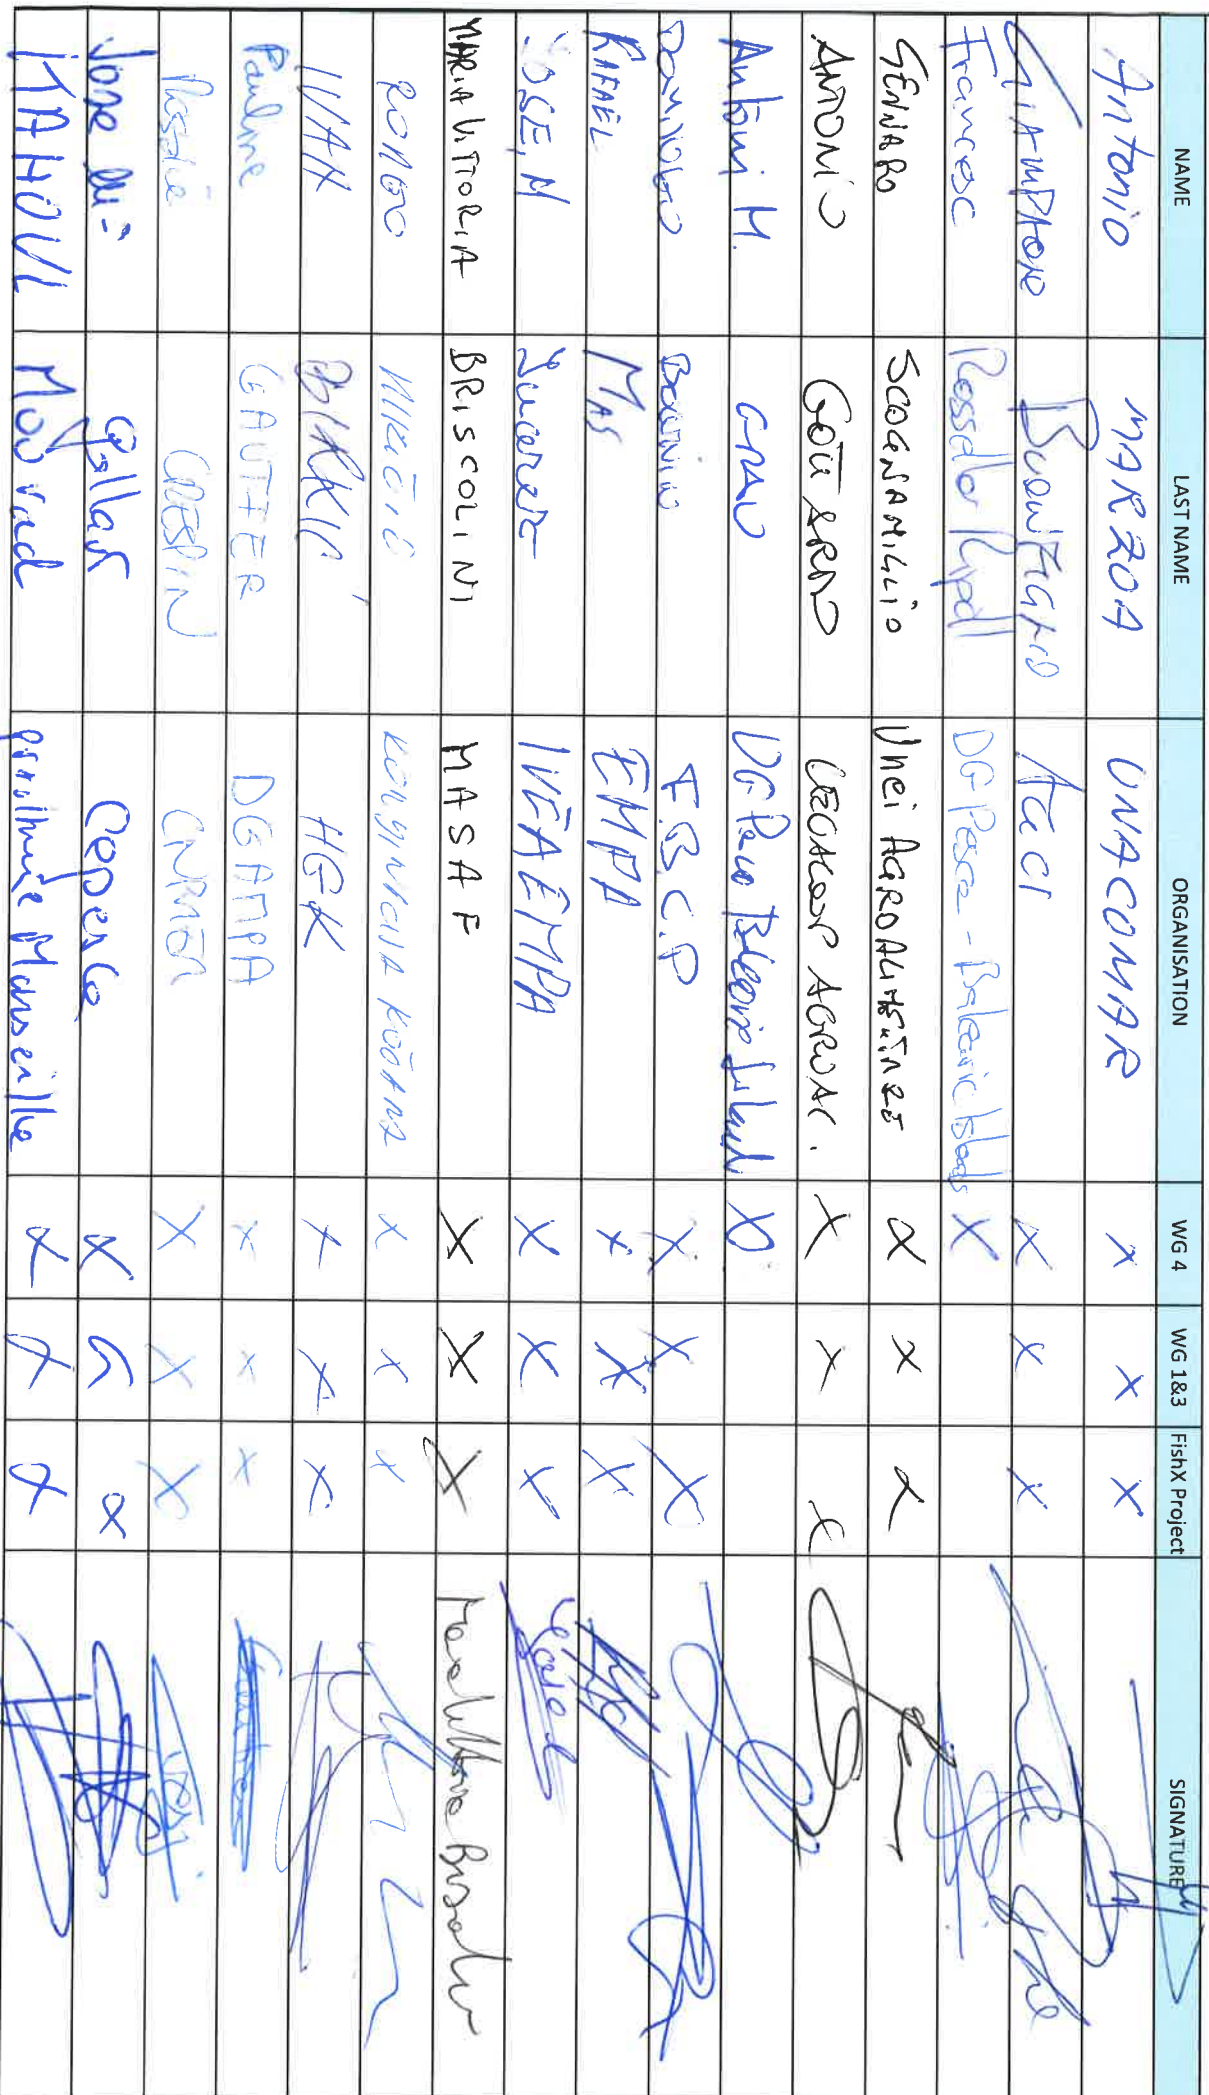 NAME LAST NAME ORGANISATION WG 4 WG 1&3 FishX Project SIGNATURE
Antonio MARZOA UNACOMAR X X X
GIAMPAOLO BUONFIGLIO AGCI X X X
Francesc Rosselló Ripoll DG Pesca - Balearic Islands X
GENNARO SCOGNAMIGLIO Unci AGROALIMENTARE X X X
ANTONIO GOTTARDO LEGACOOP AGROAL. X X X
Antoni M. GRAU DG Pesca Balearic Island X
F.B.C.P X X X
RAFAEL MAS EMPA X X X
JOSE, M IVEAEMPA X X X
MARIA VITTORIA BRISCOLINI MASAF X X X Maria Vittoria Briscolini
ROMEO MIKIČIĆ X X X
IVAN BIRKIĆ HGK X X X
Pauline GAUTIER DGAMPA X X X
CRESPIN CNPMEM X X X
Jose Copesco X X
MAHOUI Mourad prud'homie Marseille X X X